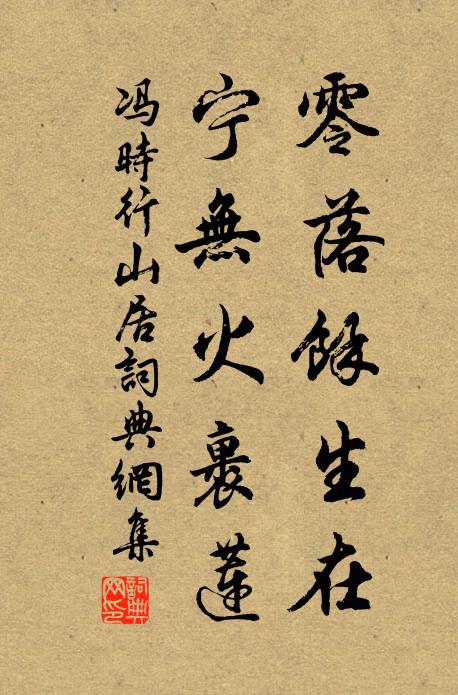 零落餘生在
宁無火裹蓮
冯時行山居詞典網集
詞典网印